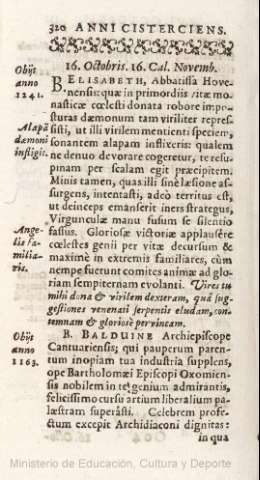 320 ANNI CISTERCIENS.
16. Octobris. 16. Cal. Novemb.
Obijt
anno
1241.
BELISABETH, Abbatissa Hove-
nensis: quæ in primordiis vitæ mo-
nasticæ cœlesti donata robore impo-
sturas dæmonum tam viriliter repres-
sisti, ut illi virilem mentienti speciem,
Alapã
dæmoni
infligit.
sonantem alapam inflixeris: qualem
ne denuo devorare cogeretur, te resu-
pinam per scalam egit præcipitem.
Minis tamen, quas illi sine læsione as-
surgens, intentasti, adeo territus est,
ut deinceps emanserit iners strategus,
Virgunculæ manu fusum se silentio
fassus. Gloriosæ victoriæ applausére
Ange-
lis fa-
milia-
ris.
cœlestes genii per vitæ decursum &
maximè in extremis familiares, cùm
nempe fuerunt comites animæ ad glo-
riam sempiternam evolanti. Vires tu
mihi dona & virilem dexteram, quâ sug-
gestiones venenati serpentis eludam, con-
temnam & gloriosè pervincam.
Obijt
anno
1163.
B. BALDUINE Archiepiscope
Cantuariensis; qui pauperum paren-
tum inopiam tua industria supplens,
ope Bartholomæi Episcopi Oxomien-
sis nobilem in te genium admirantis,
felicissimo cursu artium liberalium pa-
læstram superâsti. Celebrem profe-
ctum excepit Archidiaconi dignitas:
in qua
Ministerio de Educación, Cultura y Deporte